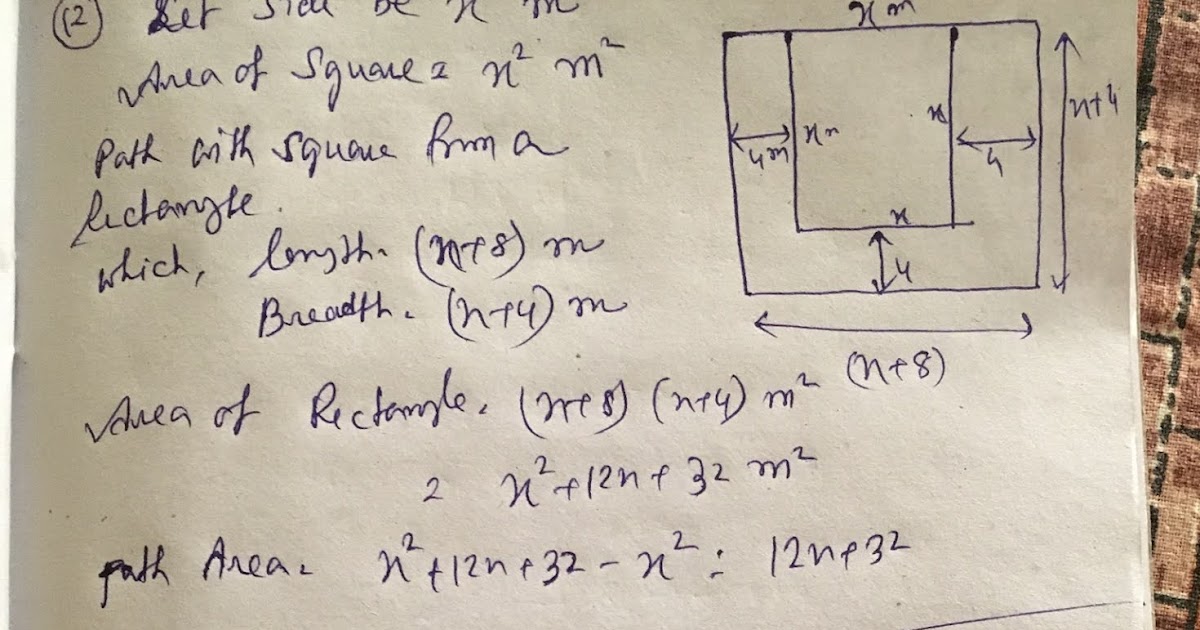 (12) Let side be x m
Area of Square = x² m²
Path with square form a
Rectangle.
which, length = (x+8) m
Breadth = (x+4) m
Area of Rectangle = (x+8) (x+4) m²
= x²+12x+32 m²
path Area = x²+12x+32 - x² = 12x+32
x m
4m
x
x
4
x+4
x
4
(x+8)